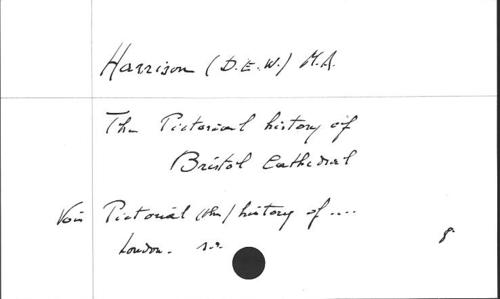 Harrison (D.E.W.) M.A.
The Pictorial history of
Bristol Cathedral
Voir Pictorial (the) history of ....
London. s.d.
8